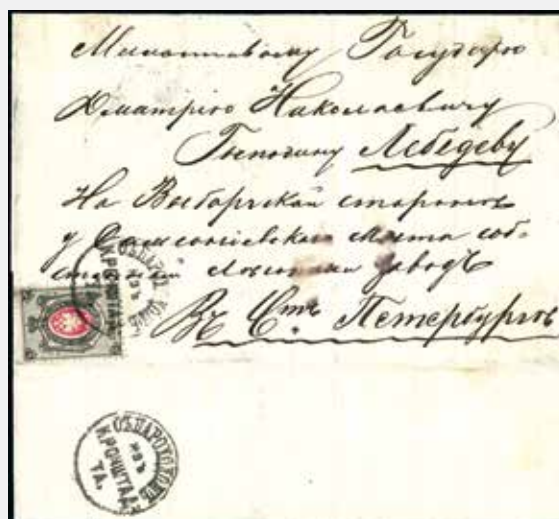 Милостивому Государю
Дмитрию Николаевичу
Господину Лебедеву
На Выборгской стороне
у Самсониевского моста соб-
ственный завод
Въ Стъ Петербургѣ
СЪ ПАРОХОДОМЪ
ИЗЪ
КРОНШТАД
ТА.